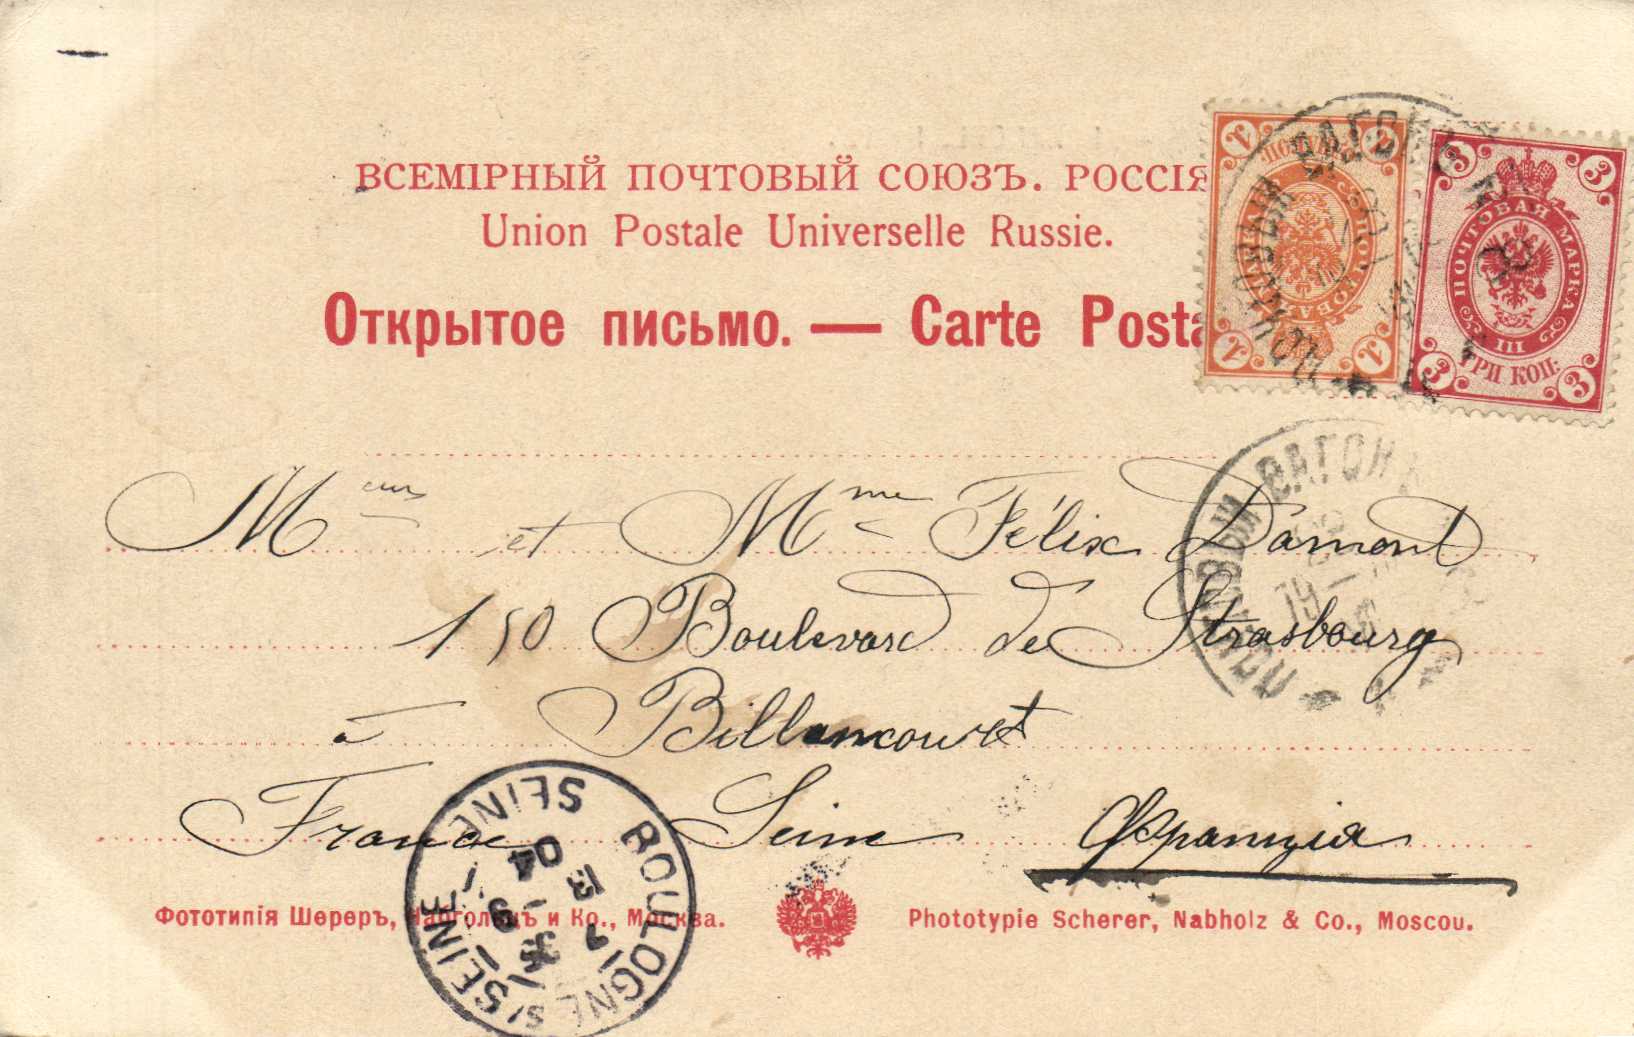 ВСЕМІРНЫЙ ПОЧТОВЫЙ СОЮЗЪ. РОССІЯ
Union Postale Universelle Russie.
Открытое письмо. — Carte Posta
1 1
1 1
3 3
ПОЧТОВАЯ МАРКА
III
ТРИ КОП.
3 3
ПОЧТОВЫЙ ВАГОНЪ
ПОЧТОВЫЙ ВАГОНЪ
19
Mr et Mme Félix Damont
150 Boulevard de Strasbourg
à Billancourt
France Seine Франція
BOULOGNE S/SEINE
SEINE
04
Фототипія Шереръ, Набгольцъ и Ко., Москва.
Phototypie Scherer, Nabholz & Co., Moscou.